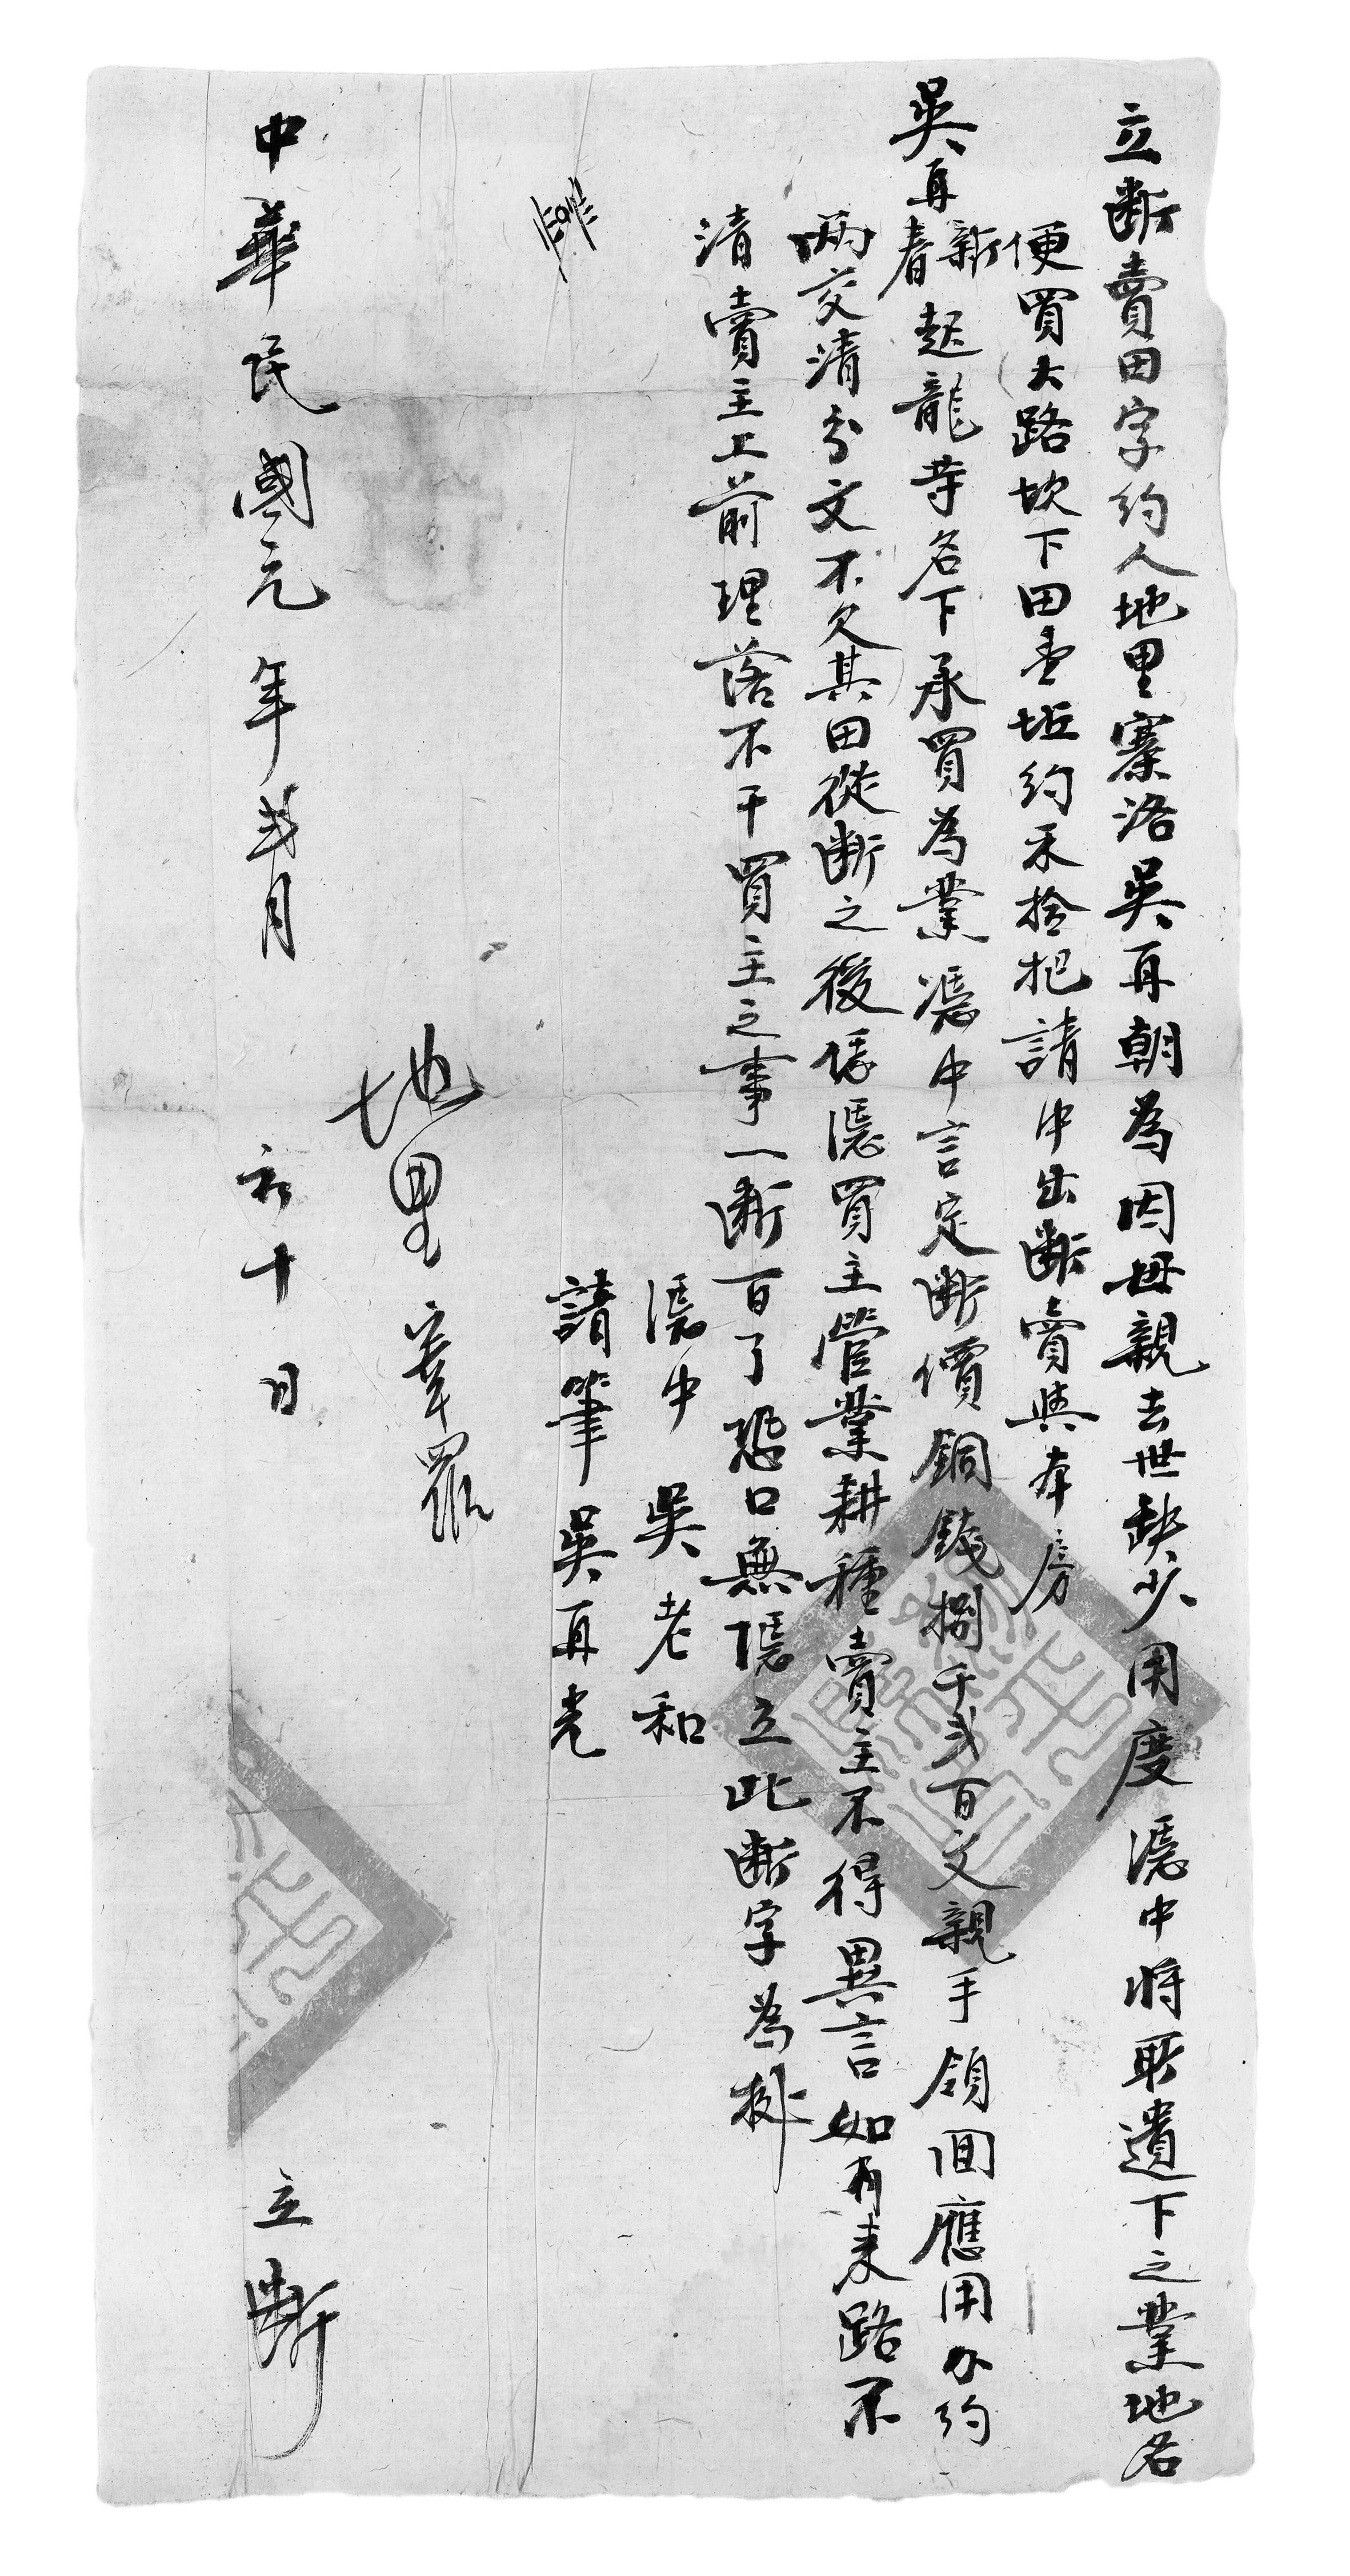 立斷賣田字約人地里寨洛吳再朝為因母親去世缺少用度憑中將耶遺下之業地名
便買大路坎下田壹坵約禾拾把請中出斷賣與本房
吳再新春起龍等名下承買為業憑中言定斷價銅錢捌千弍百文親手領囬應用办約
兩交清分文不欠其田從斷之後恁憑買主管業耕種賣主不得異言如有来路不
清賣主上前理落不干買主之事一斷百了恐口無憑立此斷字為據
憑中 吳老和
請筆 吳再光
地里
中華民國元年弍月初十日 立斷